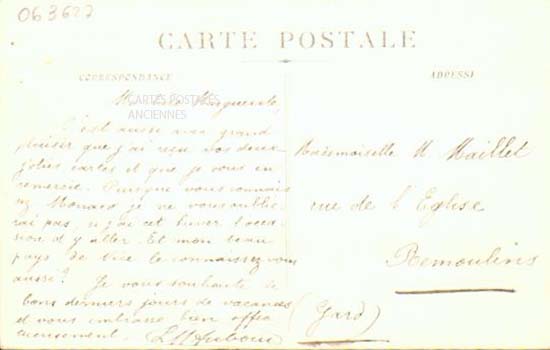 063627
CARTE POSTALE
CORRESPONDANCE
ADRESSE
CARTES POSTALES
ANCIENNES
C'est aussi avec grand
plaisir que j'ai reçu vos deux
jolies cartes et que je vous en
remercie. Puisque vous connais
ez Monaco je ne vous oublie-
rai pas, si j'ai cet hiver l'occa-
sion d'y aller. Et mon beau
pays de Nice le connaissez-vous
aussi? Je vous souhaite de
bons derniers jours de vacances
et vous embrasse bien affec
tueusement.
Mademoiselle M. Maillet
rue de l'Eglise
Remoulins
(Gard)